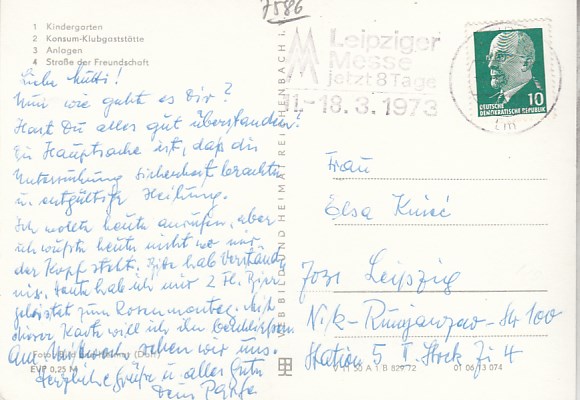 7586
1 Kindergarten
2 Konsum-Klubgaststätte
3 Anlagen
4 Straße der Freundschaft
Liebe Mutti!
Nun wie geht es Dir?
Hast Du alles gut überstanden?
Hauptsache ist, daß die
Untersuchung Sicherheit brachte
u. entgültige Heilung.
Ich wollte heute anrufen, aber
ich wußte heute nicht wo mir
der Kopf steht. Bitte hab Verständ-
nis. Heute hab ich mir 2 Fl. Bier
geleistet zum Rosenmontag. Mit
dieser Karte will ich
Am Mittwoch sehen wir uns.
Herzliche Grüße u. alles Gute
Dein
EVP 0,25 M
BILD UND HEIMAT REICHENBACH I.
Leipziger
Messe
jetzt 8 Tage
11.-18.3.1973
DEUTSCHE
DEMOKRATISCHE REPUBLIK
10
Frau
Elsa
701 Leipzig
Str 100
Station 5 II. Stock Zi 4
A 1 B 829 72
01 06 13 074